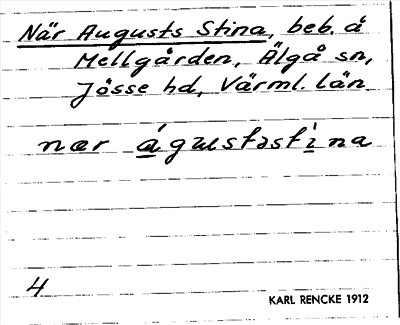 När Augusts Stina, beb. å
Mellgården, Älgå sn,
Jösse hd, Värml. län
nær
4
KARL RENCKE 1912